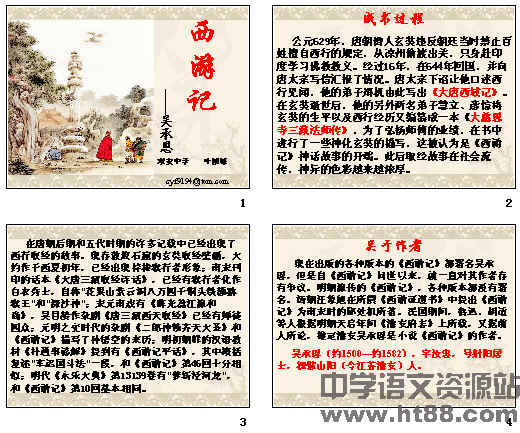 西游记
——吴承恩
求实中学
1
成书过程
公元629年，唐朝僧人玄奘违反朝廷当时禁止百
姓擅自西行的规定，从凉州偷渡出关，只身赴印
度学习佛教教义。经过16年，在644年回国，并向
唐太宗写信汇报了情况。唐太宗下诏让他口述西
行见闻，他的弟子辩机由此写出《大唐西域记》。
在玄奘逝世后，他的另外两名弟子慧立、彦悰将
玄奘的生平以及西行经历又编纂成一本《大慈恩
寺三藏法师传》，为了弘扬师傅的业绩，在书中
进行了一些神化玄奘的描写，这被认为是《西游
记》神话故事的开端。此后取经故事在社会流
传，神异的色彩越来越浓厚。
2
在唐朝后期和五代时期的许多记载中已经出现了
西行取经的故事，现存敦煌石窟的玄奘取经壁画，大
约作于西夏初年，已经出现持棒猴行者形象；南宋刊
印的话本《大唐三藏取经诗话》，已经有猴行者化作
白衣秀士，自称“花果山紫云洞八万四千铜头铁额猕
猴王”和“深沙神”；宋元南戏有《陈光蕊江流和
尚》，吴昌龄作杂剧《唐三藏西天取经》已经有师徒
四众；元明之交时代的杂剧《二郎神锁齐天大圣》和
《西游记》描写了孙悟空的来历；明初朝鲜的汉语教
材《朴通事谚解》提到有《西游记平话》，其中概括
复述“车迟国斗法”一段，和《西游记》第46回十分相
似；明代《永乐大典》第13139卷有“梦斩泾河龙”，
和《西游记》第10回基本相同。
3
关于作者
现在出版的各种版本的《西游记》都署名吴承
恩，但是自《西游记》问世以来，就一直对其作者存
有争议。明朝流传的《西游记》，各种版本都没有署
名。清朝汪象旭在所撰《西游证道书》中提出《西游
记》为南宋时的丘处机所著，民国期间，鲁迅、胡适
等人根据明朝天启年间《淮安府志》上所载，又据前
人所论，确定淮安吴承恩是小说《西游记》的作者。
吴承恩（约1500—约1582），字汝忠，号射阳居
士，祖籍山阳（今江苏淮安）人。
4
中学语文资源站
www.ht88.com